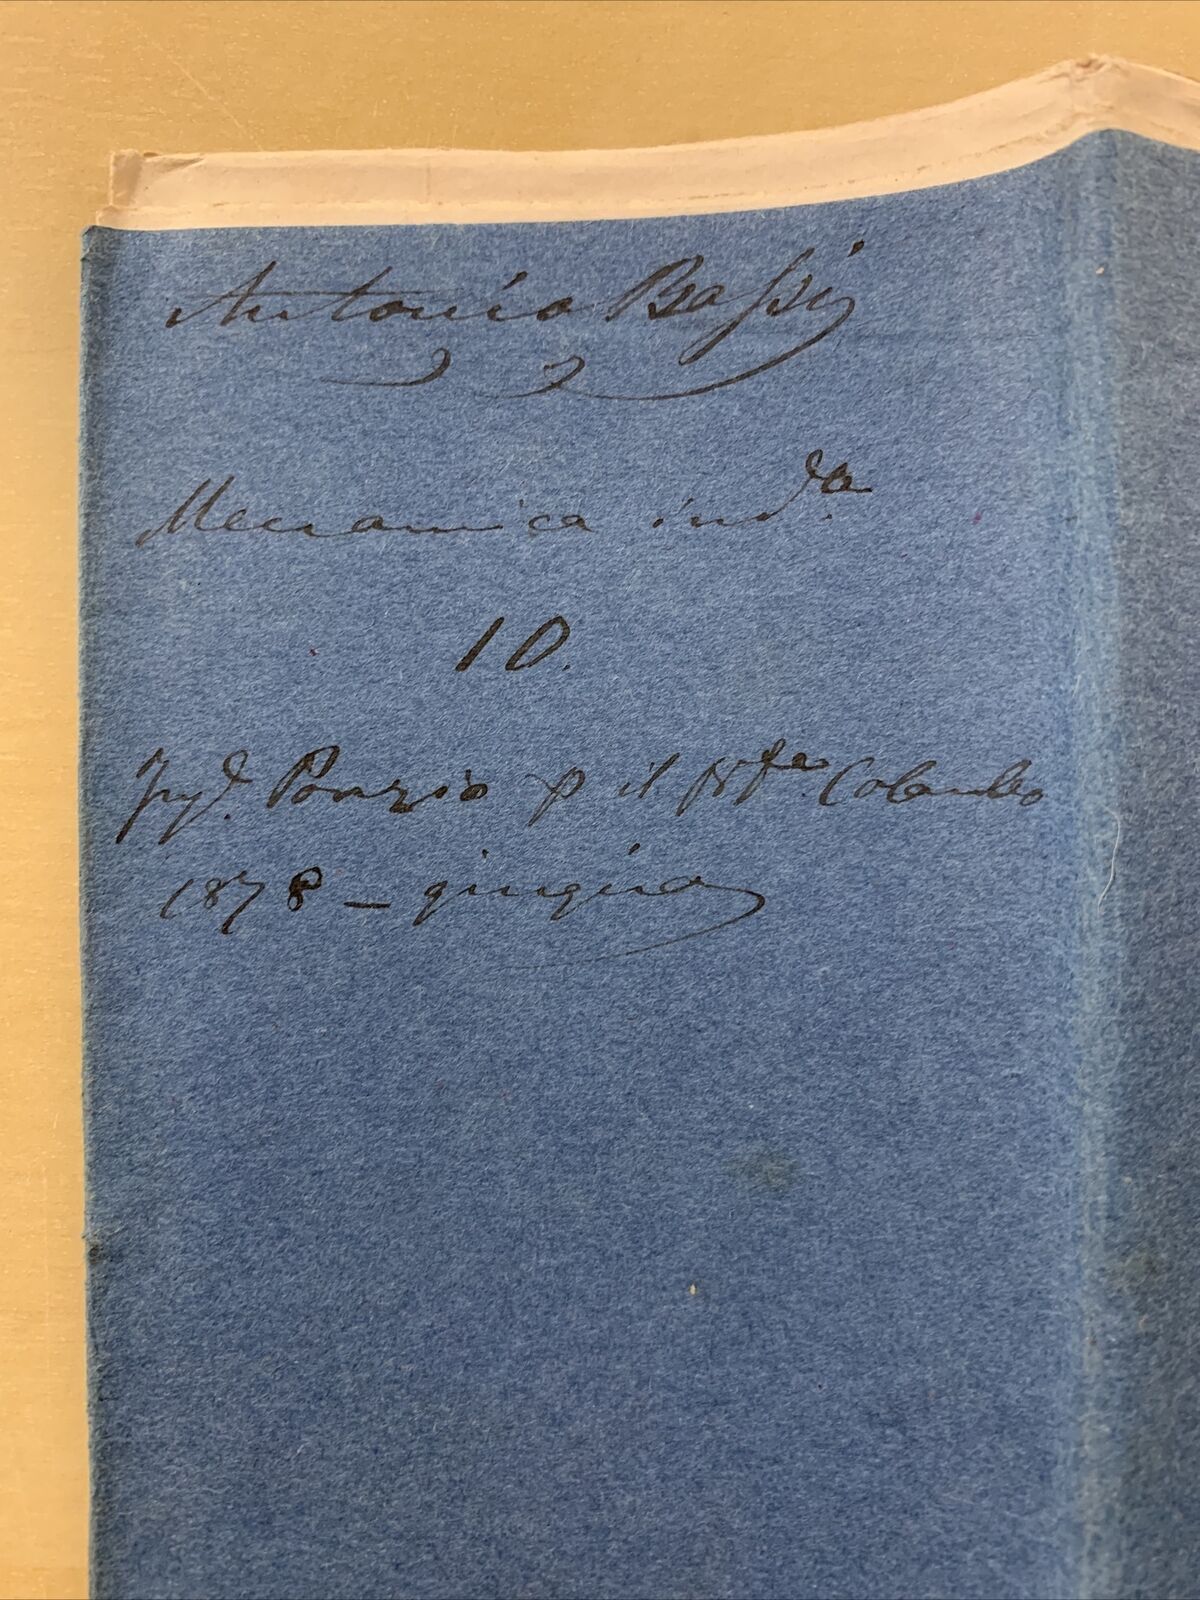 Antonio Bassi
Meccanica ind.a
10.
Ing.e Ponzio p il Prof.e Colombo
1878 - giugno